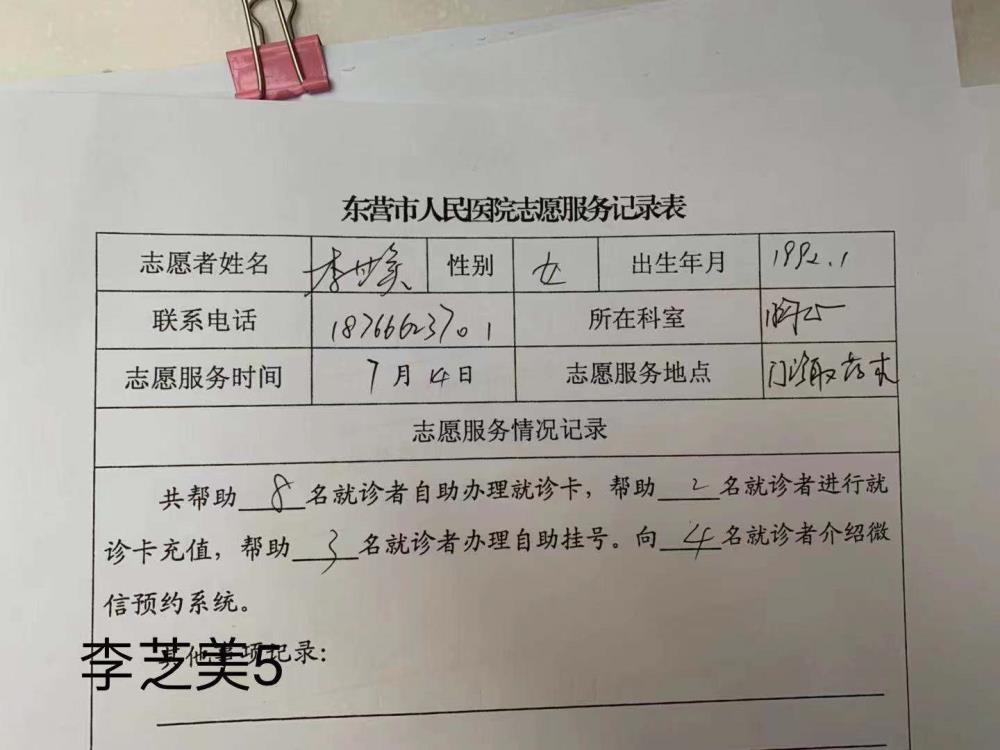 东营市人民医院志愿服务记录表
志愿者姓名 李 性别 女 出生年月 1992.1
联系电话 18766623701 所在科室
志愿服务时间 7月14日 志愿服务地点 门诊取药
志愿服务情况记录
共帮助 8 名就诊者自助办理就诊卡，帮助 2 名就诊者进行就
诊卡充值，帮助 3 名就诊者办理自助挂号。向 4 名就诊者介绍微
信预约系统。
其他事项记录：
李芝美5